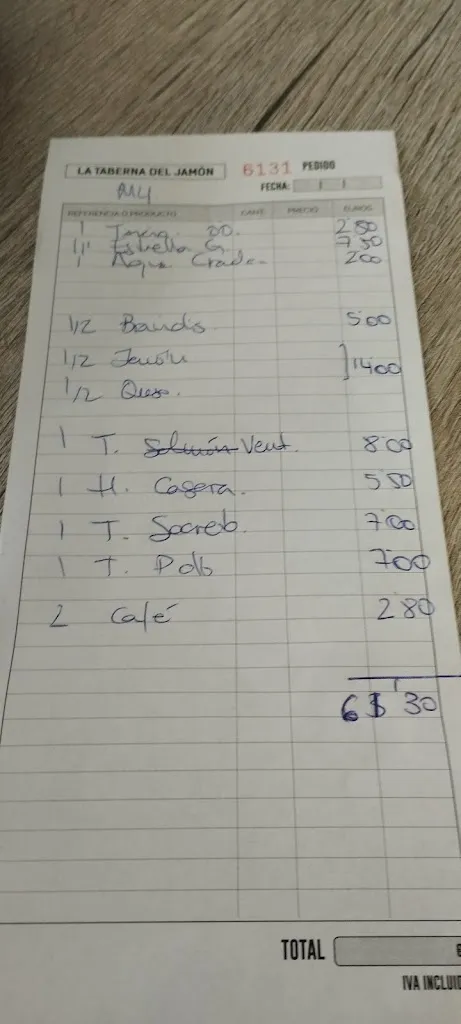 LA TABERNA DEL JAMÓN 6131 PEDIDO
FECHA:
M4
REFERENCIA O PRODUCTO CANT. PRECIO EUROS
1 00. 280
111 Estrella G. 750
1 Agua Grade. 200
1/2 Bandis 500
1/2 Jamón
1400
1/2 Queso.
1 T. Salmón Vent. 800
1 H. Casera. 550
1 T. Secreto. 700
1 T. Pollo 700
2 Café 280
61 30
TOTAL
IVA INCLUID